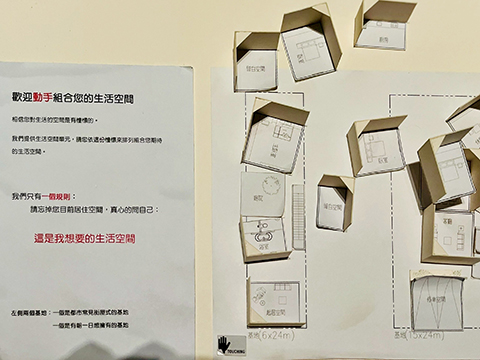 歡迎動手組合您的生活空間
相信您對生活的空間是有憧憬的。
我們提供生活空間單元，請您依這份憧憬來排列組合您期待
的生活空間。
我們只有一個規則：
請忘掉您目前居住空間，真心的問自己：
這是我想要的生活空間
左側兩個基地：一個是都市常見街屋式的基地
一個是有朝一日想擁有的基地
留白空間
廚房
臥室
留白空間
庭院
浴室
客廳
起居空間
停車空間
基地(6x24m)
基地(15x24m)
TOUCHING